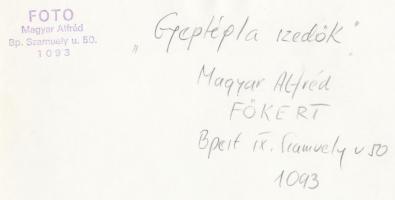 FOTO
Magyar Alfréd
Bp. Szamuely u. 50.
1093
„Gyeptégla szedők"
Magyar Alfréd
FŐKERT
Bpest IX. Szamuely u 50
1093